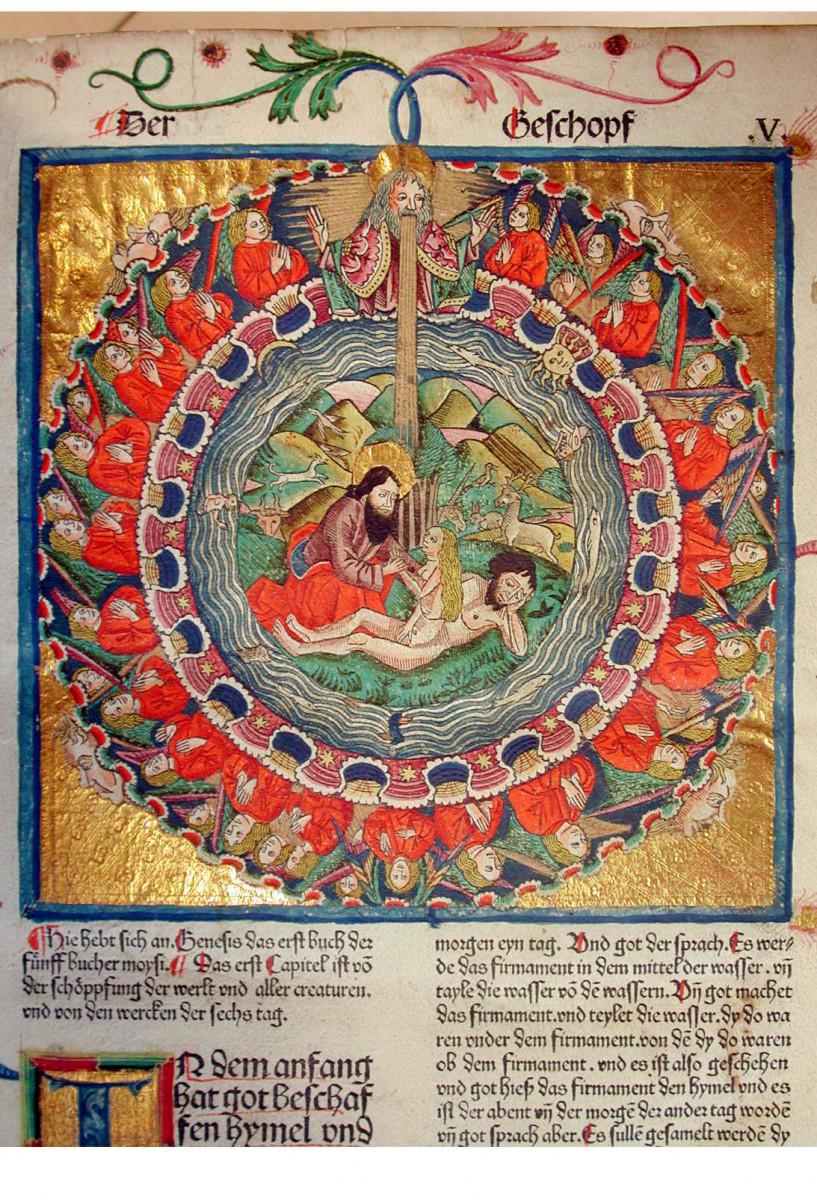 Der Geschopf .V.
Hie hebt sich an. Genesis das erst buch der
fünff bucher moysi. Das erst Capitel ist võ
der schöppfung der werlt vnd aller creaturen.
vnd von den wercken der sechs tag.
IN dem anfang
hat got beschaf
fen hymel vnd
morgen eyn tag. Vnd got der sprach. Es wer⸗
de das firmament in dem mittel der wasser. vñ
tayle die wasser võ dẽ wassern. Vñ got machet
das firmament. vnd teylet die wasser. dy do wa
ren vnder dem firmament. von dẽ dy do waren
ob dem firmament. vnd es ist also geschehen
vnd got hieß das firmament den hymel vnd es
ist der abent vñ der morgẽ der ander tag wordẽ
vñ got sprach aber. Es sullẽ gesamelt werdẽ dy